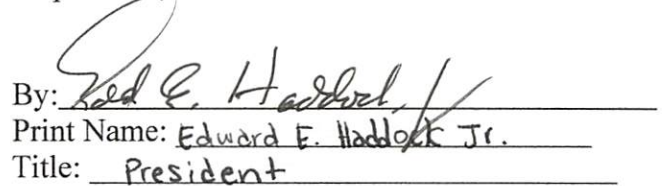 By: Edd E. Haddock, Jr
Print Name: Edward E. Haddock Jr.
Title: President